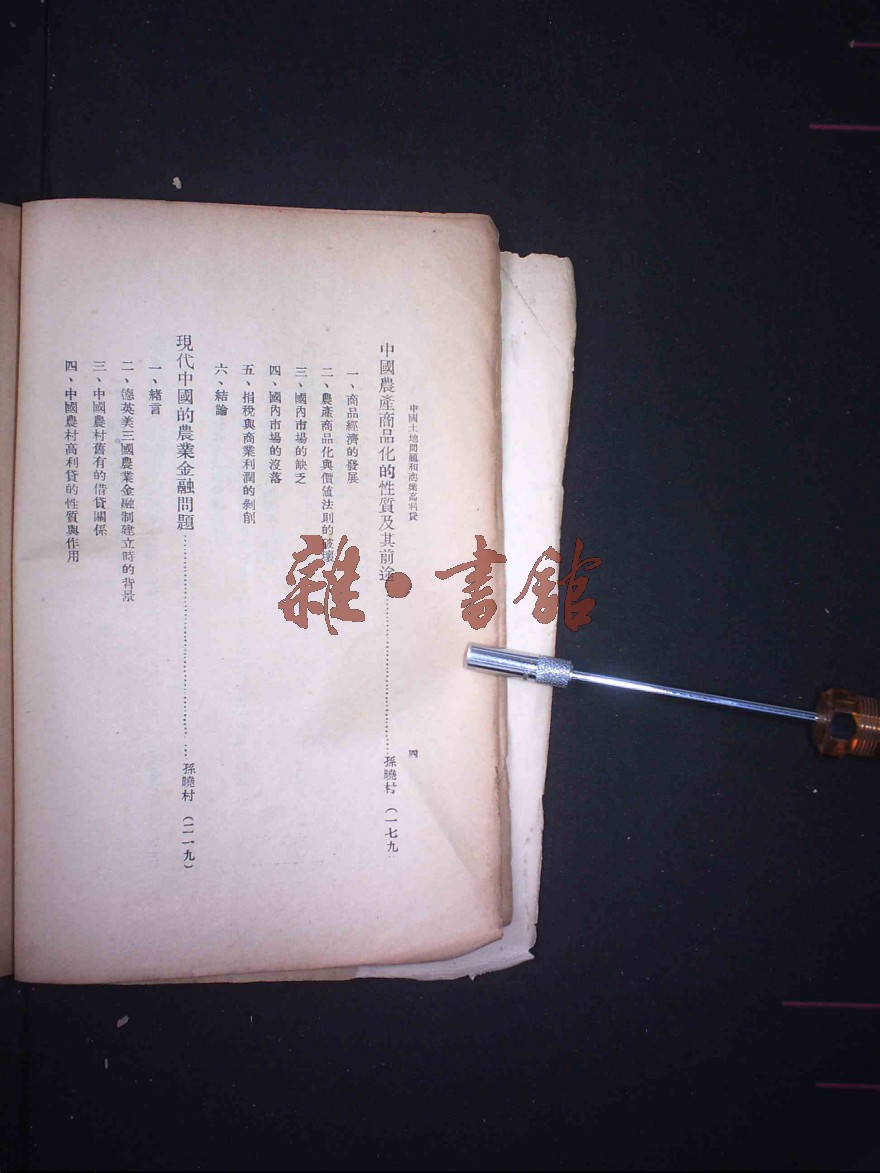 中國土地問題和商業高利貸
四
中國農產商品化的性質及其前途⋯⋯⋯⋯⋯⋯孫曉村（一七九
一、商品經濟的發展
二、農產商品化與價値法則的破壞
三、國內市場的缺乏
四、國內市場的沒落
五、捐稅與商業利潤的剝削
六、結論
現代中國的農業金融問題⋯⋯⋯⋯⋯⋯孫曉村（二一九）
一、緒言
二、德英美三國農業金融制建立時的背景
三、中國農村舊有的借貸關係
四、中國農村高利貸的性質與作用
雜·書館